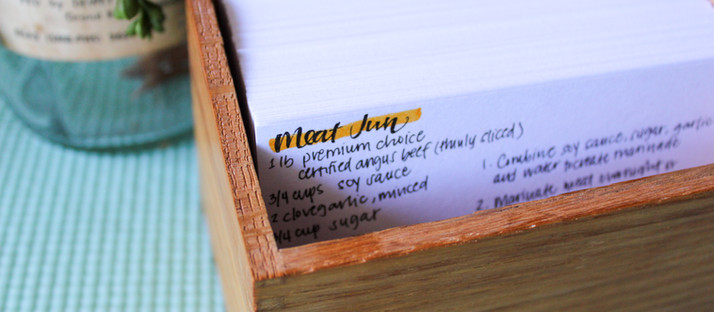 Meat Jun
1 lb premium choice
certified angus beef (thinly sliced)
3/4 cups soy sauce
2 clove garlic, minced
1/4 cup sugar
1. Combine soy sauce, sugar, garlic
and water to make marinade
2. Marinate meat overnight